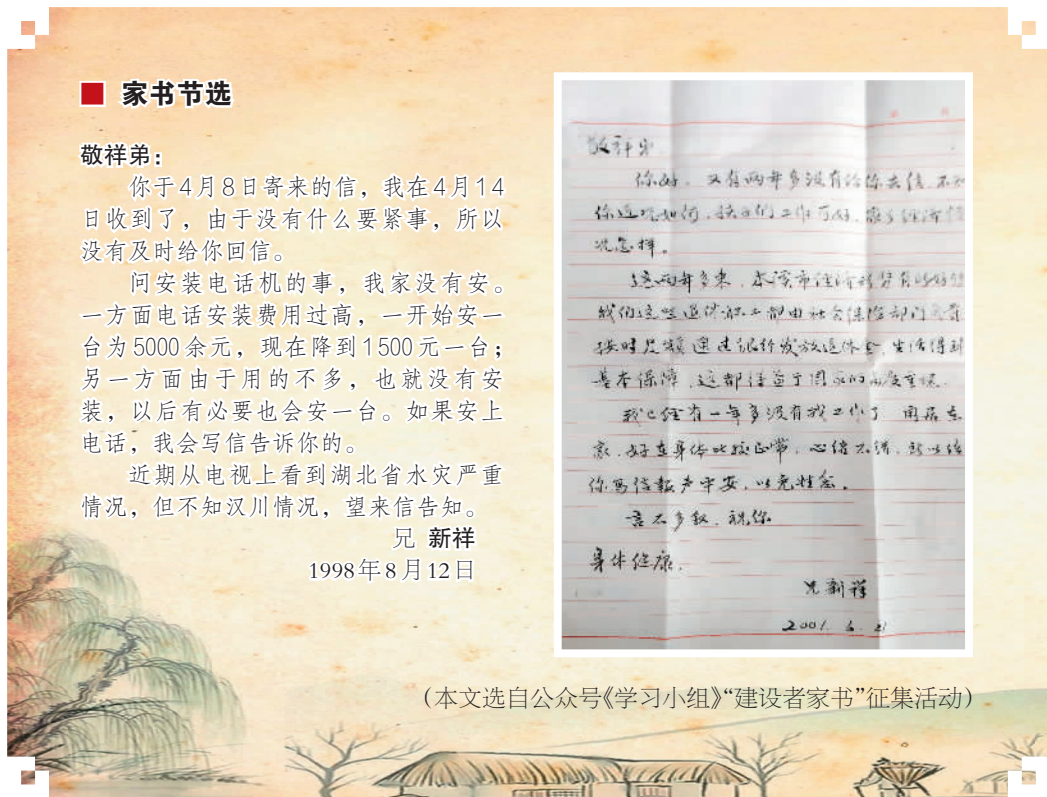 家书节选
敬祥弟：
你于4月8日寄来的信，我在4月14
日收到了，由于没有什么要紧事，所以
没有及时给你回信。
问安装电话机的事，我家没有安。
一方面电话安装费用过高，一开始安一
台为5000余元，现在降到1500元一台；
另一方面由于用的不多，也就没有安
装，以后有必要也会安一台。如果安上
电话，我会写信告诉你的。
近期从电视上看到湖北省水灾严重
情况，但不知汉川情况，望来信告知。
兄 新祥
1998年8月12日
敬祥弟
你好，又有两年多没有给你去信，不知
你近况如何，孩子们工作可好，家乡经济情
况怎样。
这两年多来，本溪市经济形势有
我们这些退休职工都由社会保险部门负责
按时足额通过银行发放退休金，生活得到
基本保障，这都得益于国家的高度重视。
我已经有一年多没有找工作了，闲居在
家，好在身体比较正常，心绪不错，所以给
你写信报声平安，以免挂念。
言不多叙，祝你
身体健康，
兄新祥
2001.6.21
（本文选自公众号《学习小组》“建设者家书”征集活动）